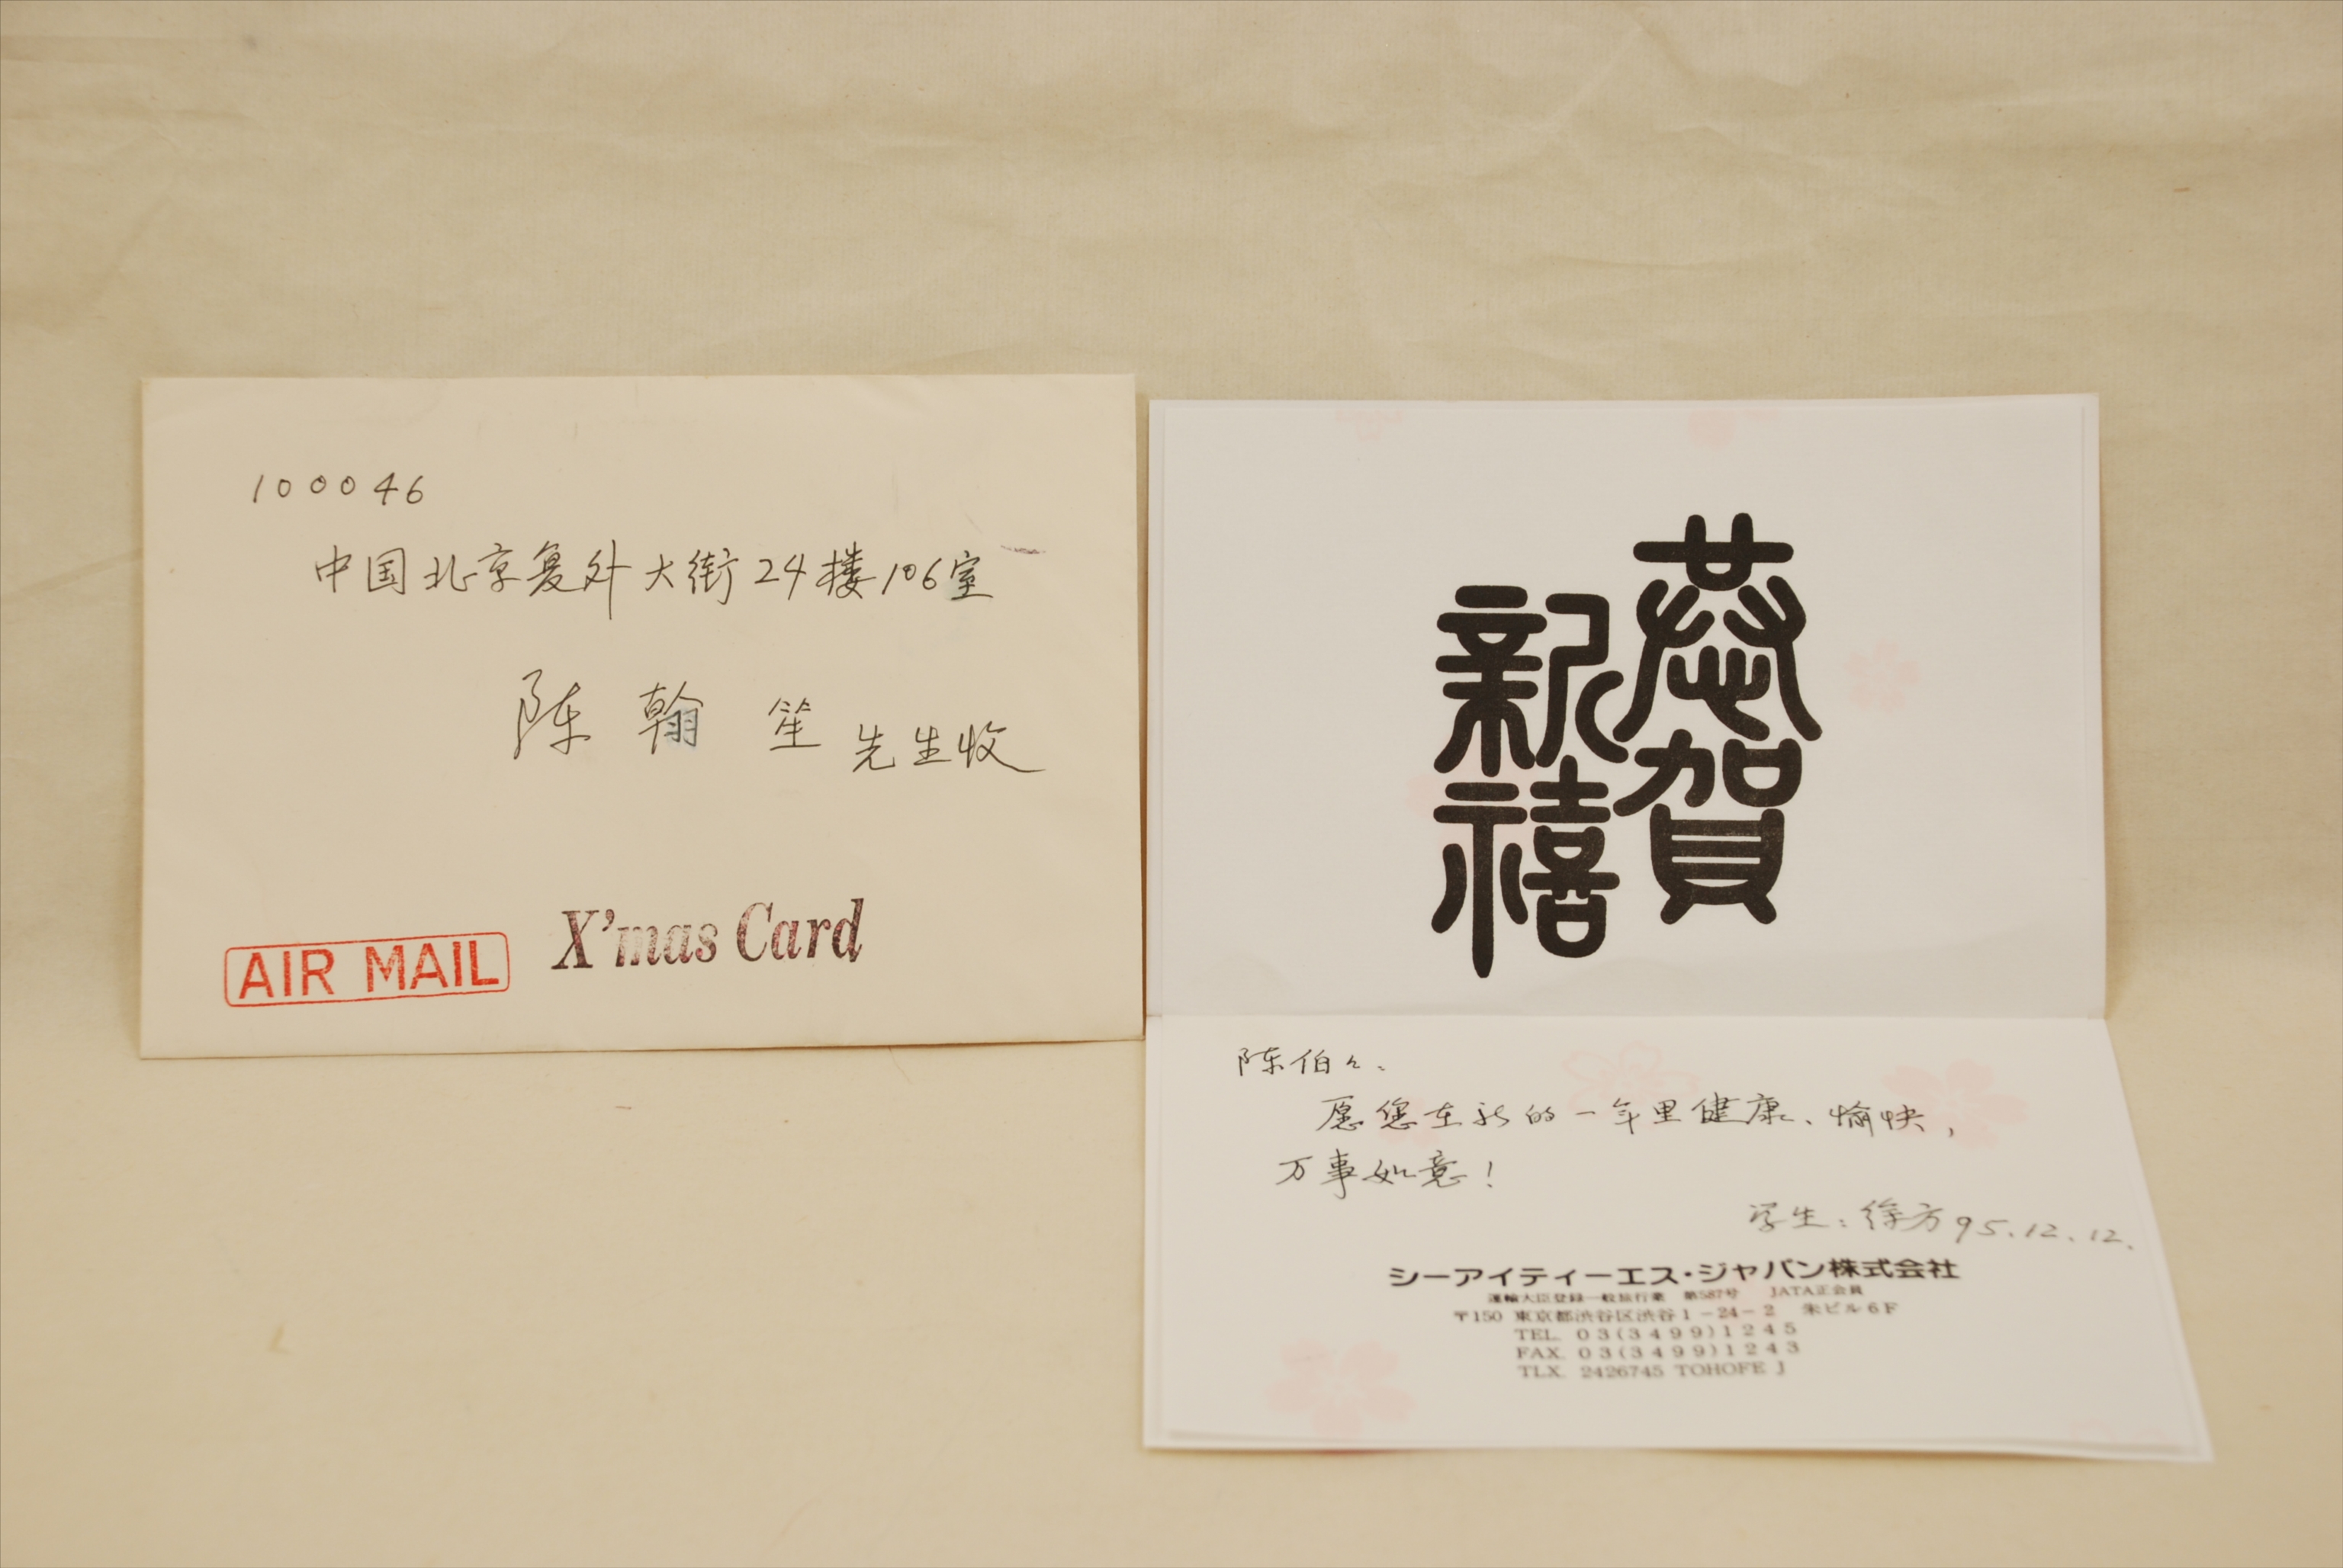 100046
中国北京复外大街24楼106室
陈翰笙先生收
AIR MAIL
X'mas Card
恭賀
新禧
陈伯々:
愿您在新的一年里健康、愉快,
万事如意!
学生:徐方95.12.12.
シーアイティーエス・ジャパン株式会社
運輸大臣登録一般旅行業 第587号 JATA正会員
〒150 東京都渋谷区渋谷1-24-2 朱ビル6F
TEL. 03(3499)1245
FAX. 03(3499)1243
TLX. 2426745 TOHOFE J